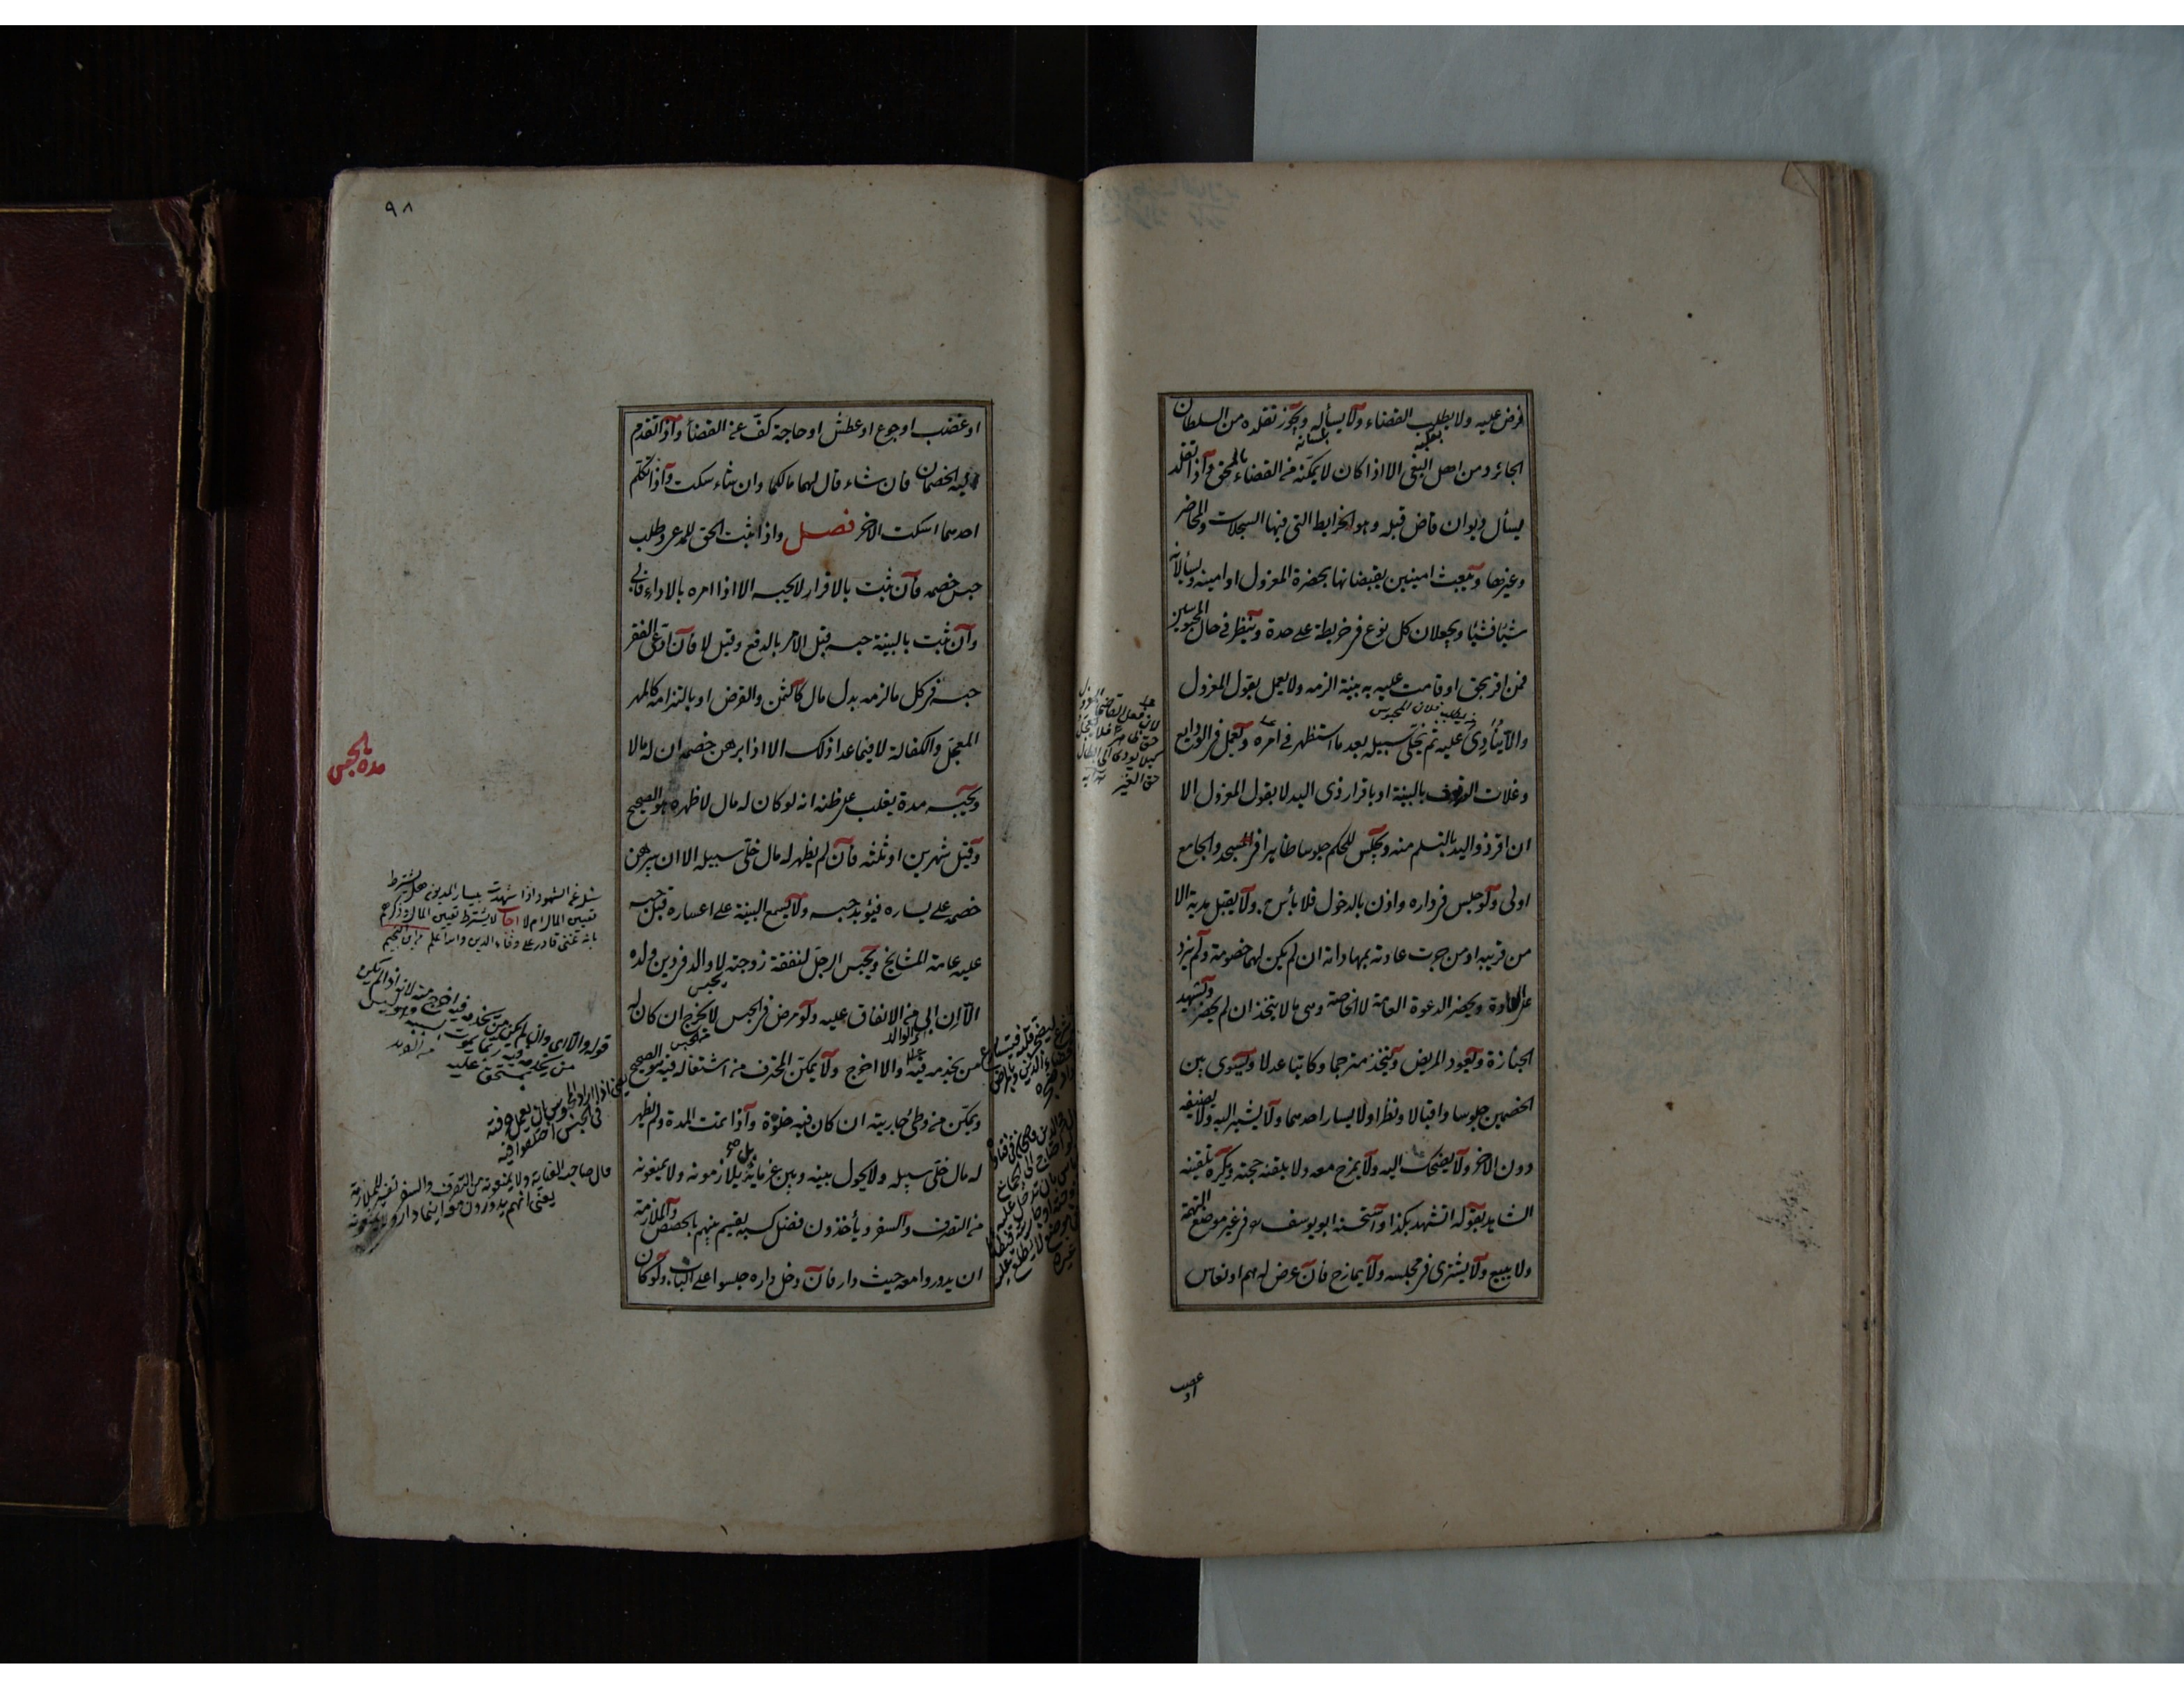 فرض عليه ولا يطلب القضاء ولا يسأله ويجوز تقلده من السلطان
بقلبه
بلسانه
الجائر ومن اهل البغى الا اذا كان لا يمكنه من القضاء بالحق واذا تقلد
يسأل ديوان قاض قبله وهو الخرايط التى فيها السجلات والمحاضر
وغيرها ويبعث امينين يقبضانها بحضرة المعزول او امينه ويسألانه
شيئا فشيئا ويجعلان كل نوع فى خريطة على حدة وينظر فى حال المحبوسين
فمن اقر بحق او قامت عليه به بينة الزمه ولا يعمل بقول المعزول
والا ينادى عليه ثم يخلى سبيله بعد ما استظهر فى امره ويعمل فى الودايع
وغلات الوقوف بالبينة او باقرار ذى اليد لا بقول المعزول الا
ان اقر ذو اليد بالتسلم منه ويجلس للحكم جلوسا ظاهرا فى المسجد والجامع
اولى ولو جلس فى داره واذن بالدخول فلا بأس به ولا يقبل هدية الا
من قريبه او من جرت عادته بمهاداته ان لم يكن لهما خصومة ولم يزد
على العادة ويحضر الدعوة العامة لا الخاصة وهى ما لا يتخذ ان لم يحضر ويشهد
الجنازة ويعود المريض ويتخذ مترجما وكاتبا عدلا ويسوى بين
الخصمين جلوسا واقبالا ونظرا ولا يسار احدهما ولا يشير اليه ولا يضيفه
دون الاخر ولا يضحك اليه ولا يمزح معه ولا يلقنه حجته ويكره تلقينه
الشاهد بقوله اتشهد بكذا واستحسنه ابو يوسف فى غير موضع التهمة
ولا يبيع ولا يشترى فى مجلسه ولا يمازح فان عرض له هم او نعاس
لان فعل القاضى المعزول
حق الغير
او غضب
٩٨
او غضب او جوع او عطش او حاجة كف عن القضاء واذا تقدم
اليه الخصمان فان شاء قال لهما مالكما وان شاء سكت واذا تكلم
احدهما اسكت الاخر فصل واذا ثبت الحق للمدعى وطلب
حبس خصمه فان ثبت بالاقرار لا يحبسه الا اذا امره بالاداء فابى
وان ثبت بالبينة حبسه قبل الامر بالدفع وقيل لا فان ادعى الفقر
حبسه فى كل ما لزمه بدل مال كالثمن والقرض او بالتزامه كالمهر
المعجل والكفالة لا فيما عدا ذلك الا اذا برهن خصمه ان له مالا
ويحبسه مدة يغلب على ظنه انه لو كان له مال لاظهره هو الصحيح
وقيل شهرين او ثلثة فان لم يظهر له مال خلى سبيله الا ان يبرهن
خصمه على يساره فيؤبد حبسه ولا يسمع البينة على اعساره قبل حبسه
عليه عامة المشايخ ويحبس الرجل لنفقة زوجته لا والد فى دين ولده
الا ان ابى من الانفاق عليه ولو مرض فى الحبس لا يخرج ان كان له
من يخدمه فيه والا اخرج ولا يمكن المحترف من اشتغاله فيه هو الصحيح
ويمكن من وطئ جاريته ان كان فيه خلوة واذا تمت المدة ولم يظهر
له مال خلى سبيله ولا يحول بينه وبين غرمائه بل يلازمونه ولا يمنعونه
من التصرف والسفر ويأخذون فضل كسبه يقسم بينهم بالحصص والملازمة
ان يدوروا معه حيث دار فان دخل داره جلسوا على الباب ولو كان
مدة الحبس
سئل عن الشهود اذا شهدت بيسار المديون هل يشترط
تعيين المال ام لا اجاب لا يشترط تعيين المال وذكر
بانه غنى قادر على وفاء الدين والله اعلم من ابن النجيم
يعنى اذا اراد المحبوس بان يعمل حرفته
فى الحبس اختلفوا فيه
قال صاحب العناية ولا يمنعونه من التصرف والسفر تفسير للملازمة
يعنى انهم يدورون معه اينما دار ولا يمنعونه